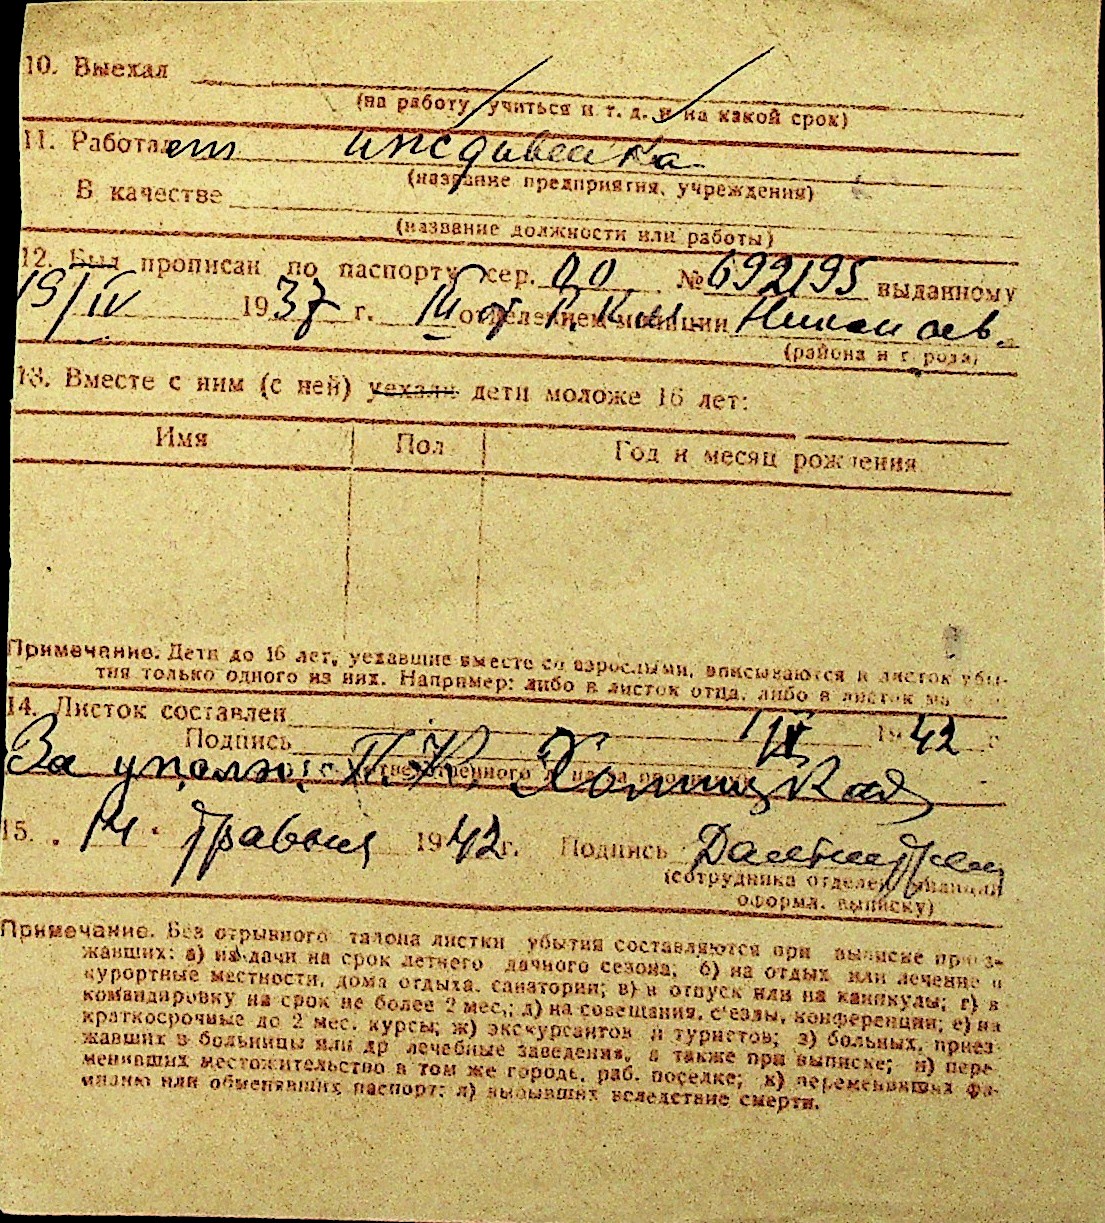 10. Выехал
(на работу, учиться и т. д. и на какой срок)
11. Работает иждивенка
(название предприятия, учреждения)
В качестве
(название должности или работы)
12. Был прописан по паспорту сер. № 692195 выданному
19/IV 1937 г. III отделением милиции Николаев.
(района и города)
13. Вместе с ним (с ней) уехали дети моложе 16 лет:
Имя Пол Год и месяц рождения
Примечание. Дети до 16 лет, уехавшие вместе со взрослыми, вписываются в листок убы-
тия только одного из них. Например: либо в листок отца, либо в листок ма
14. Листок составлен 1942 г
Подпись
За П. К.
15. 14 травня 1942 г. Подпись
(сотрудника отделен. милиции
оформл. выписку)
Примечание. Без отрывного талона листки убытия составляются при выписке приез-
жавших: а) на дачи на срок летнего дачного сезона; б) на отдых или лечение в
курортные местности, дома отдыха, санатории; в) в отпуск или на каникулы; г) в
командировку на срок не более 2 мес.; д) на совещания, с'езды, конференции; е) на
краткосрочные до 2 мес. курсы; ж) экскурсантов и туристов; з) больных, приез
жавших в больницы или др лечебные заведения, а также при выписке; и) пере-
менивших местожительство в том же городе, раб. поселке; к) переменивших фа-
милию или обменявших паспорт; л) выбывших вследствие смерти.